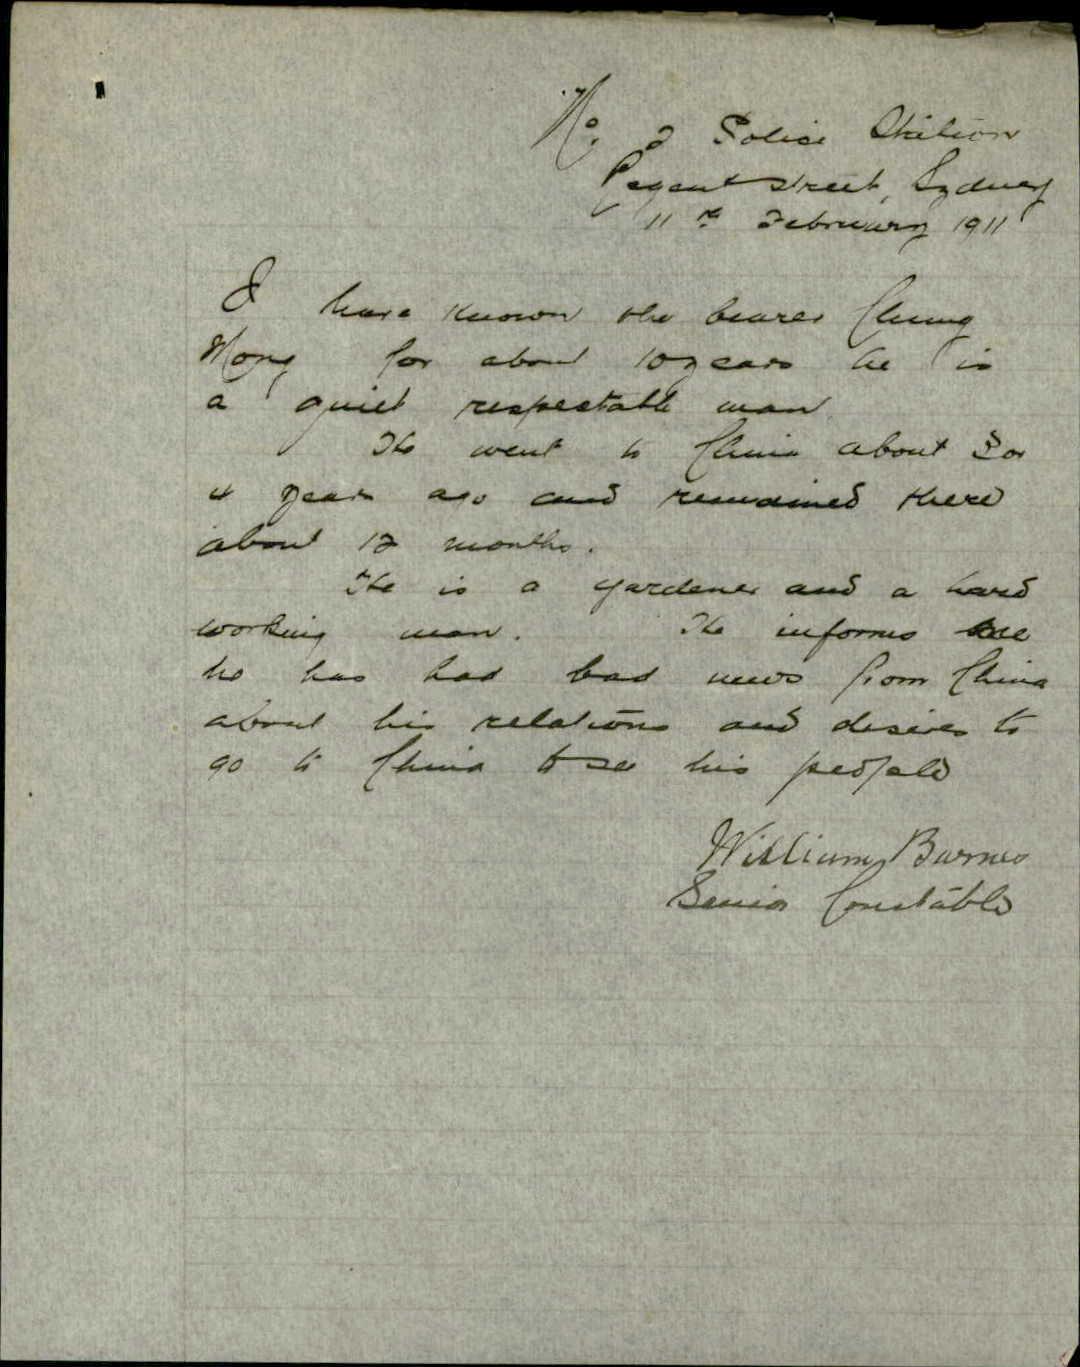 No. 2 Police Station
Regent Street, Sydney
11th February 1911
I have known the bearer Chung
Wong for about 10 years he is
a quiet respectable man
He went to China about 3 or
4 years ago and remained there
about 12 months.
He is a gardener and a hard
working man. He informs me
he has had bad news from China
about his relations and desires to
go to China to see his people
William Barnes
Senior Constable